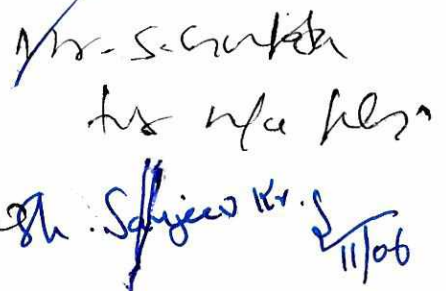 Mr. S. Gupta
for n/a pls.
Sh. Sanjeev Kr.
11/06